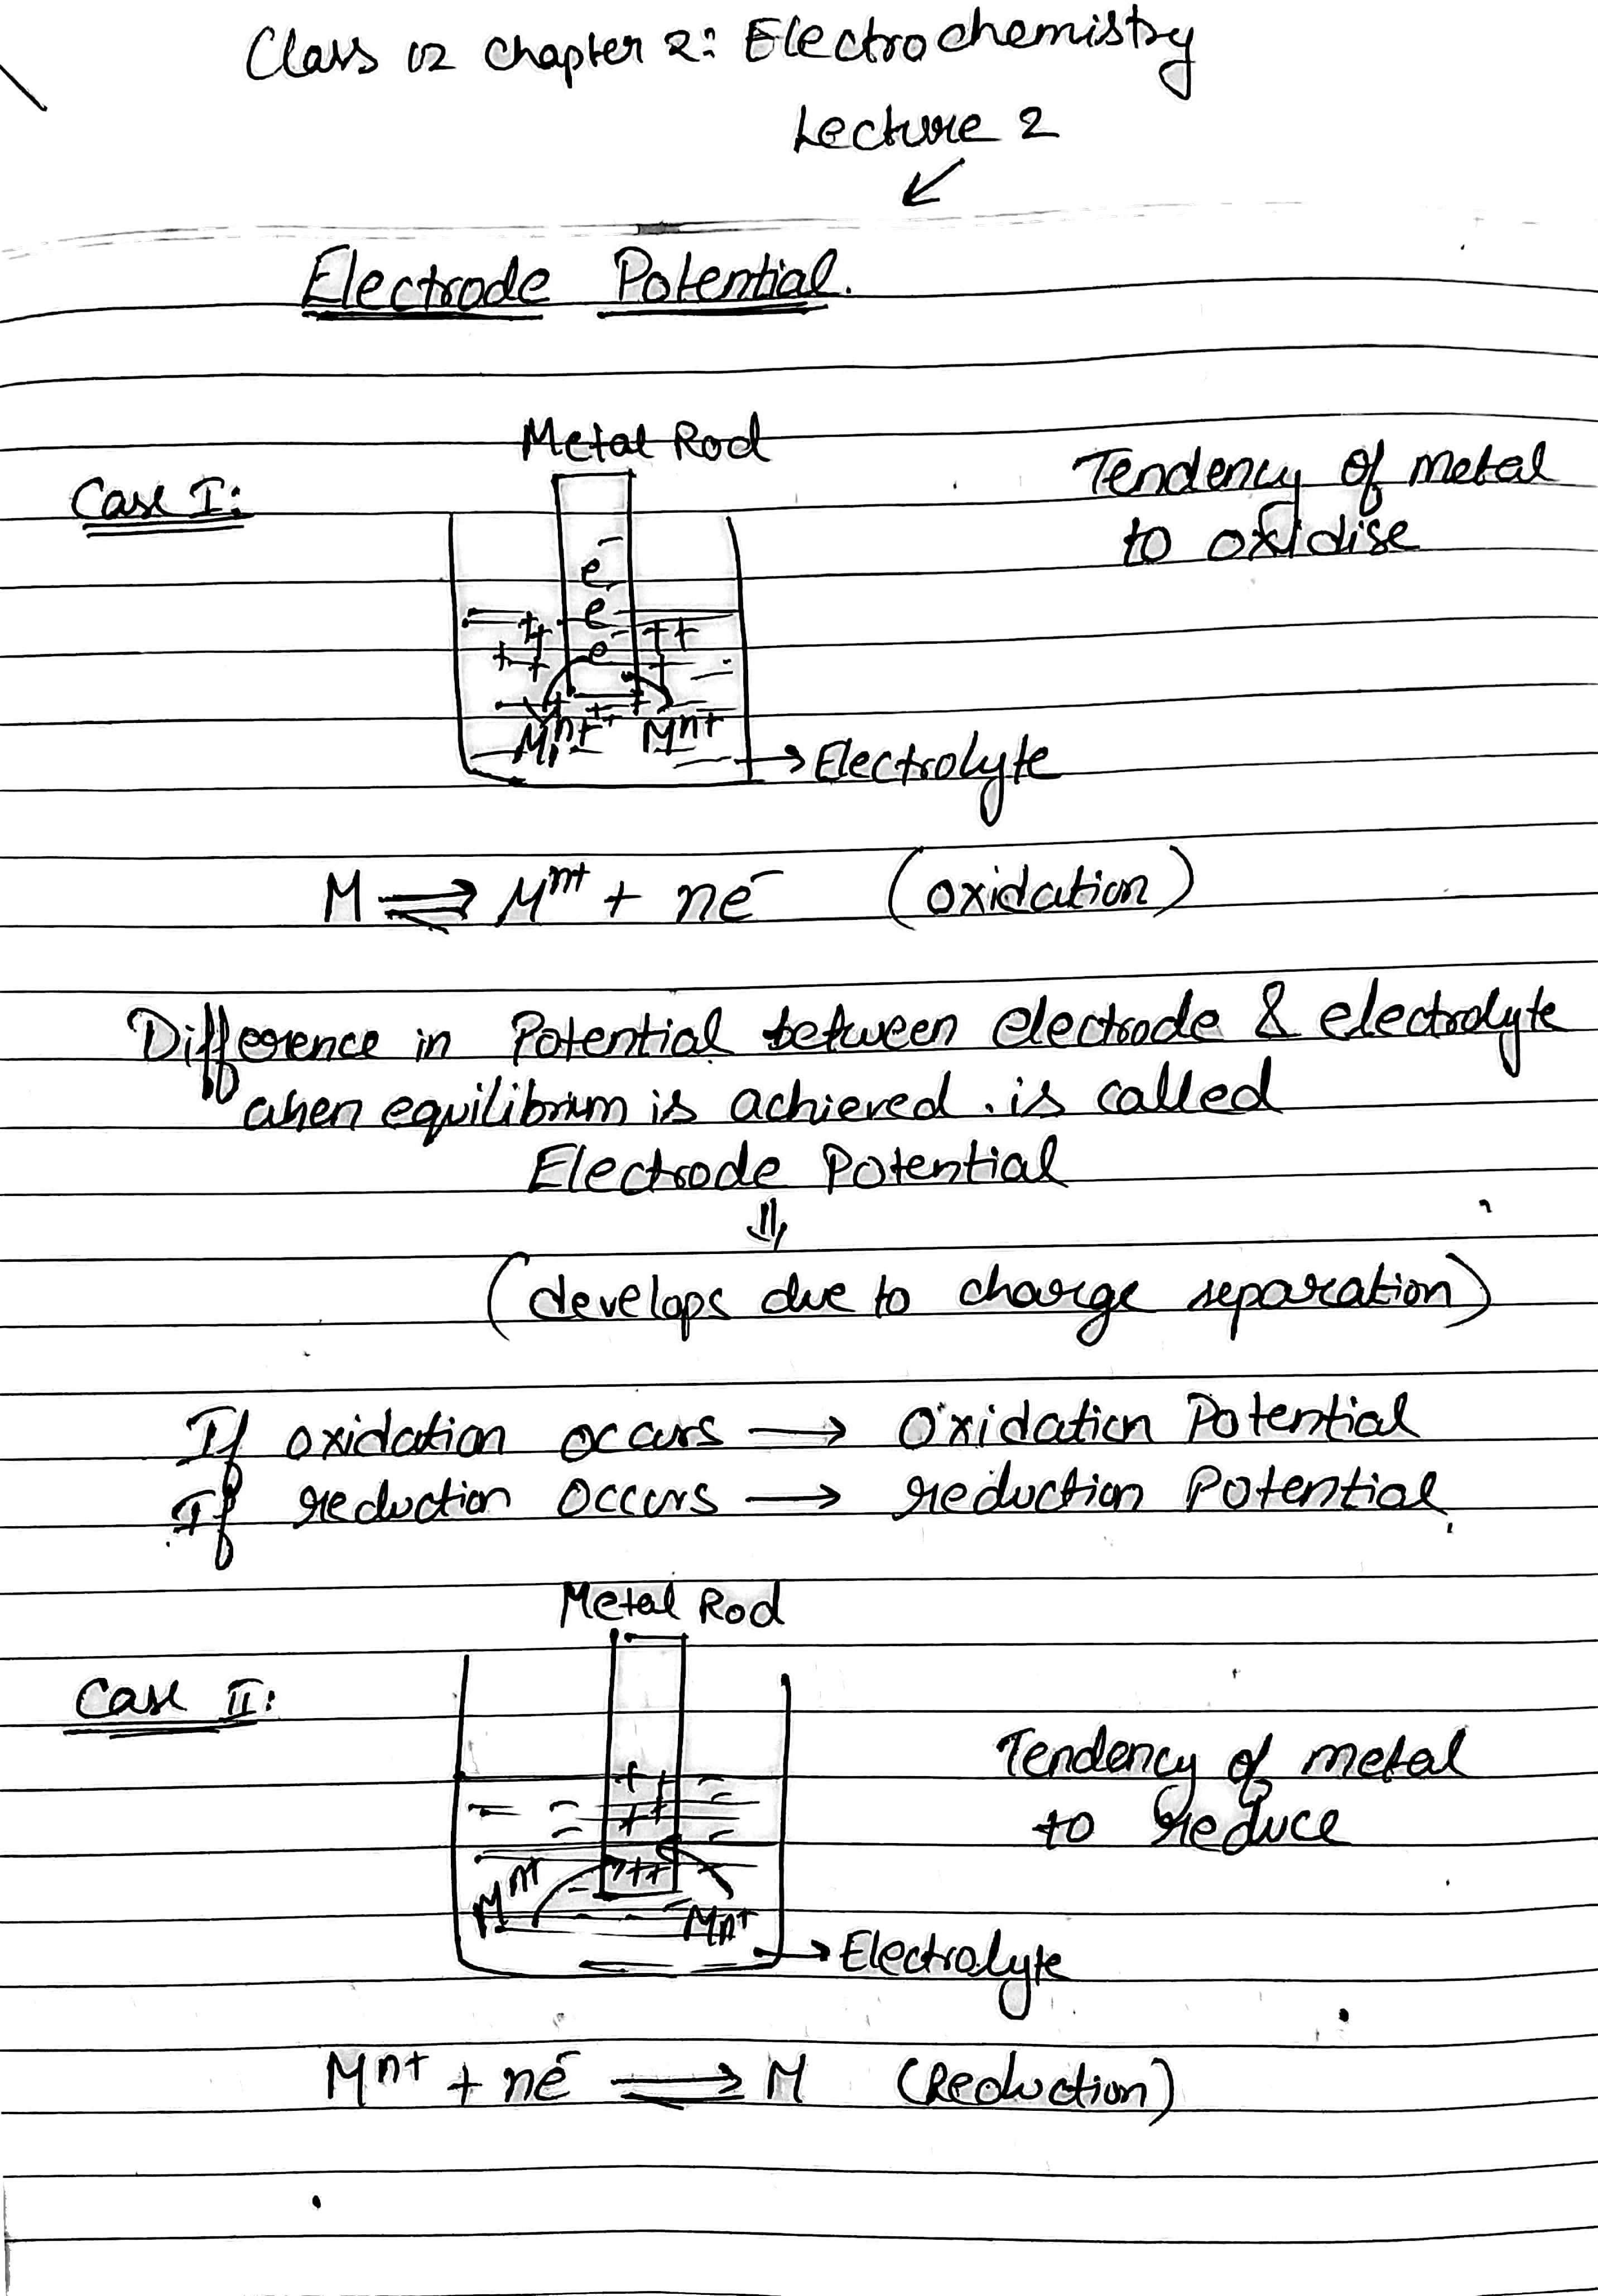 Class 12 Chapter 2: Electrochemistry
Lecture 2
Electrode Potential.
Metal Rod
Case I:
Tendency of metal
to oxidise
e⁻
e⁻
e⁻
Mⁿ⁺ Mⁿ⁺
Electrolyte
M ⇌ Mⁿ⁺ + ne⁻ (oxidation)
Difference in Potential between electrode & electrolyte
when equilibrium is achieved. is called
Electrode Potential
⇓
(develops due to charge separation)
If oxidation occurs → Oxidation Potential
If reduction occurs → reduction Potential.
Metal Rod
Case II:
Tendency of metal
to reduce
Mⁿ⁺ Mⁿ⁺
Electrolyte
Mⁿ⁺ + ne⁻ ⇌ M (Reduction)